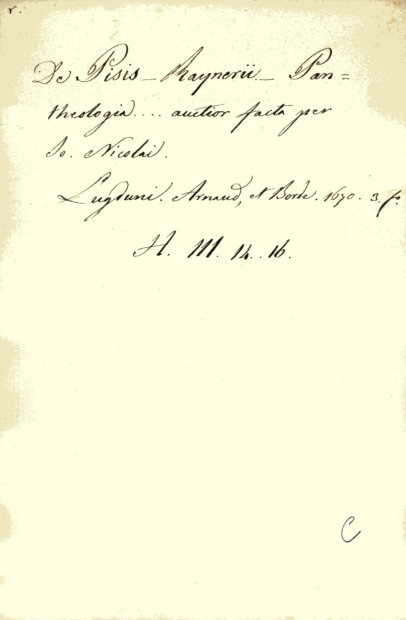 r.
De Pisis _ Raynerii _ Pan=
theologia .... auctior facta per
Jo. Nicolai.
Lugduni. Arnaud, et Borde. 1670. 3. fo.
H. III. 14. 16.
C